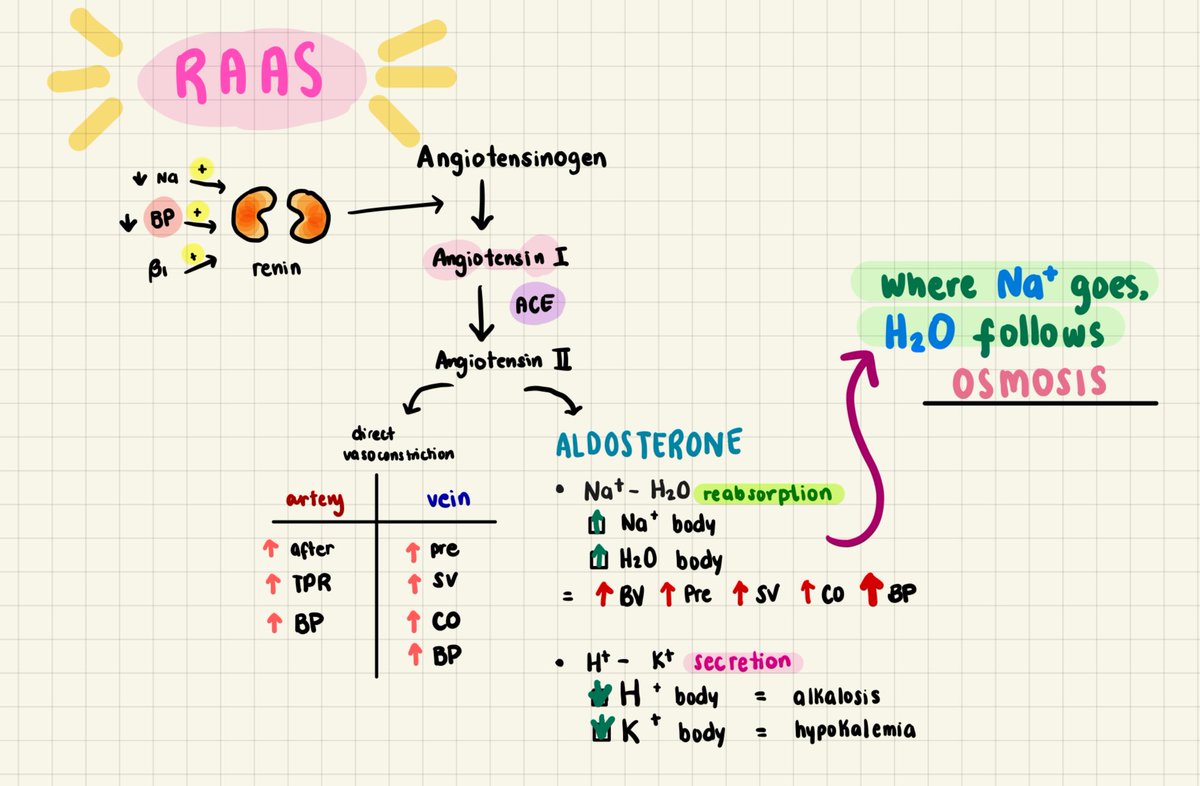 RAAS
↓ Na +
↓ BP +
β₁ +
renin
Angiotensinogen
Angiotensin I
ACE
Angiotensin II
direct
vasoconstriction
artery
↑ after
↑ TPR
↑ BP
vein
↑ pre
↑ SV
↑ CO
↑ BP
ALDOSTERONE
• Na⁺ - H₂O reabsorption
↑ Na⁺ body
↑ H₂O body
= ↑ BV ↑ Pre ↑ SV ↑ CO ↑ BP
• H⁺ - K⁺ secretion
↓ H⁺ body = alkalosis
↓ K⁺ body = hypokalemia
Where Na⁺ goes,
H₂O follows
OSMOSIS